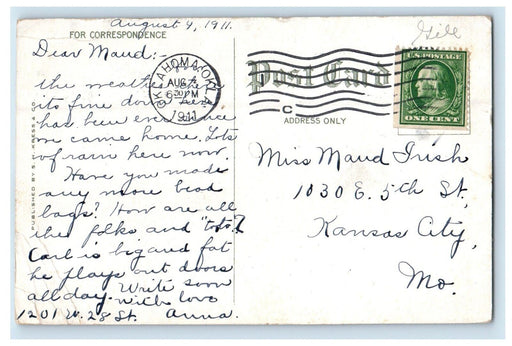 August 4, 1911.
FOR CORRESPONDENCE
Dear Maud:-
the weather
its fine down here
has been ever since
we came home. Lots
of rain here now.
Have you made
any more bead
bags? How are all
the folks and "tots"?
Carl is big and fat
he plays out doors
all day. Write soon
with love
1201 W. 28 St. Anna.
PUBLISHED BY S. H. KRESS & CO.
OKLAHOMA, OKLA.
AUG
630PM
1911
C
Post Card
ADDRESS ONLY
Gill
U.S. POSTAGE
ONE CENT
Miss Maud Irish
1030 E. 5th St,
Kansas City,
Mo.